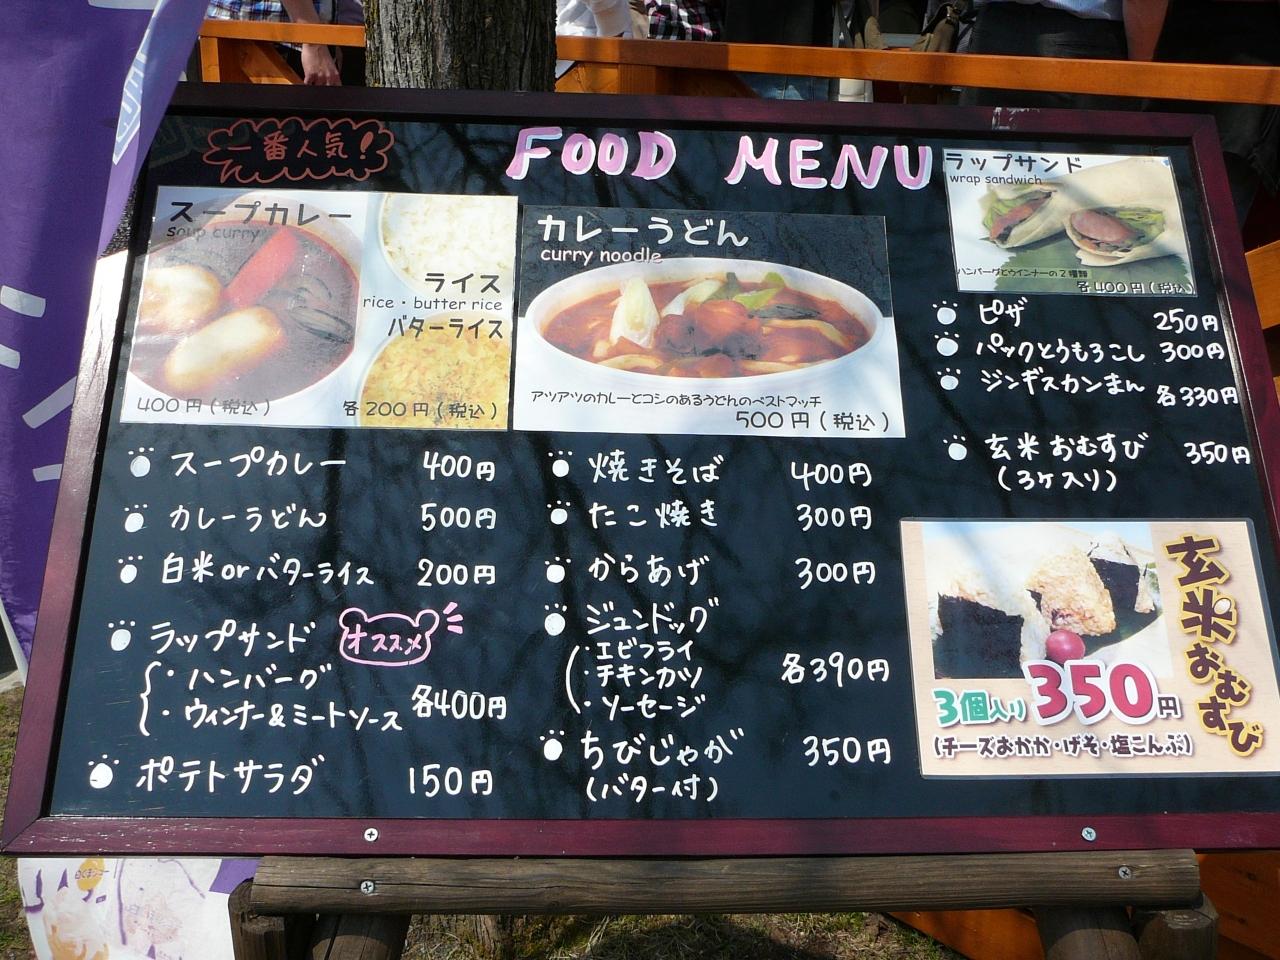 一番人気!
FOOD MENU
スープカレー
soup curry
400円(税込)
ライス
rice・butter rice
バターライス
各200円(税込)
カレーうどん
curry noodle
アツアツのカレーとコシのあるうどんのベストマッチ
500円(税込)
ラップサンド
wrap sandwich
ハンバーグとウインナーの2種類
各400円(税込)
スープカレー 400円
カレーうどん 500円
白米orバターライス 200円
ラップサンド オススメ
・ハンバーグ
・ウィンナー&ミートソース 各400円
ポテトサラダ 150円
焼きそば 400円
たこ焼き 300円
からあげ 300円
ジュンドッグ
・エビフライ
・チキンカツ 各390円
・ソーセージ
ちびじゃが 350円
(バター付)
ピザ 250円
パックとうもろこし 300円
ジンギスカンまん 各330円
玄米おむすび 350円
(3ケ入り)
玄米おむすび
3個入り 350円
(チーズおかか・げそ・塩こんぶ)